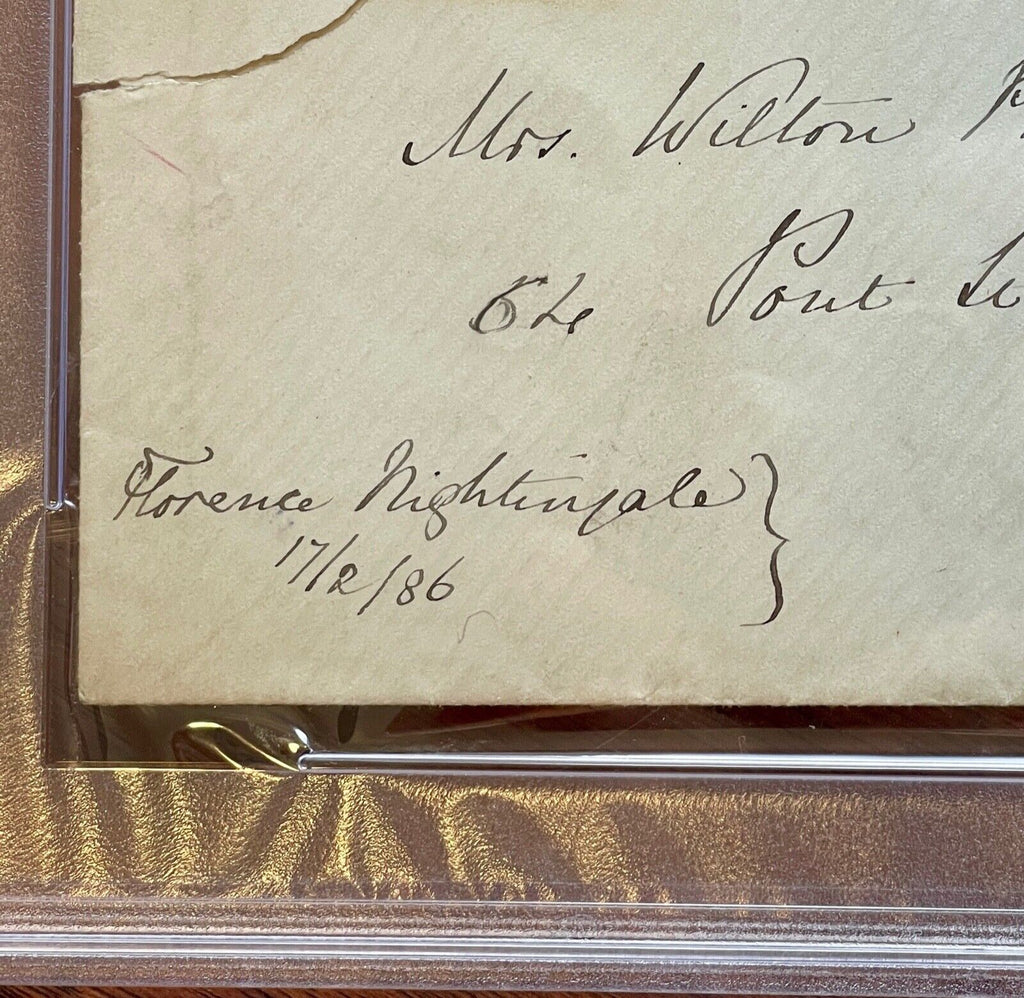 Mrs. Wilton
64 Pont
Florence Nightingale
17/2/86